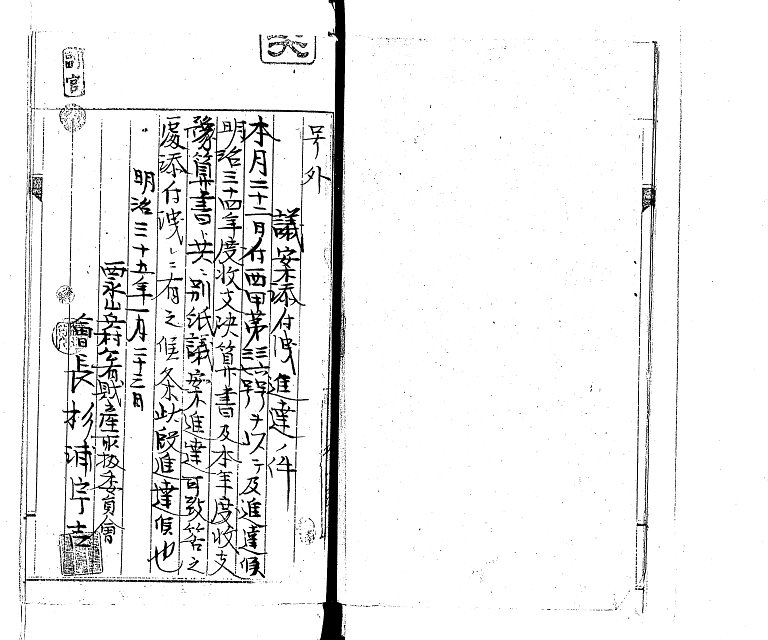 号外
議案添付洩進達ノ件
本月二十二日付西甲第三六号ヲ以テ及進達候
明治三十四年度收支決算書及本年度收支
豫算書共ニ別紙議案進達可致筈之
處添付洩ニ有之候条此段進達候也
明治三十五年一月二十三日
財産取扱委員會
會長 杉浦宇吉
副官